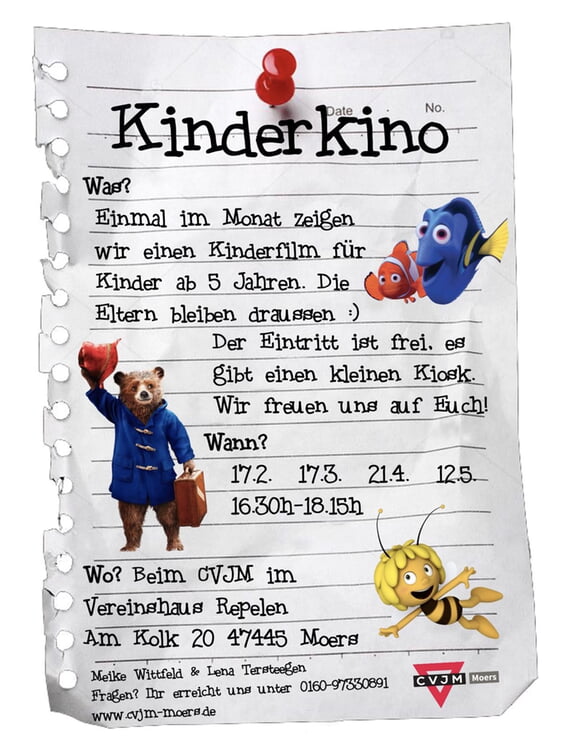 Date No.
Kinderkino
Was?
Einmal im Monat zeigen
wir einen Kinderfilm für
Kinder ab 5 Jahren. Die
Eltern bleiben draussen :)
Der Eintritt ist frei, es
gibt einen kleinen Kiosk.
Wir freuen uns auf Euch!
Wann?
17.2. 17.3. 21.4. 12.5.
16.30h-18.15h
Wo? Beim CVJM im
Vereinshaus Repelen
Am Kolk 20 47445 Moers
Meike Wittfeld & Lena Tersteegen
Fragen? Ihr erreicht uns unter 0160-97330891
www.cvjm-moers.de
CVJM Moers